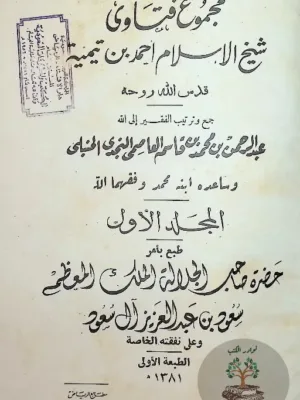 مجموع فتاوى
شيخ الاسلام احمد بن تيمية
قدس الله روحه
جمع وترتيب الفقير إلى الله
عبد الرحمن بن محمد بن قاسم العاصمي النجدي الحنبلي
وساعده ابنه محمد وفقهما الله
المجلد الأول
طبع بأمر
حضرة صاحب الجلالة الملك المعظم
سعود بن عبد العزيز آل سعود
وعلى نفقته الخاصة
الطبعة الأولى
١٣٨١ هـ
نور الكتب